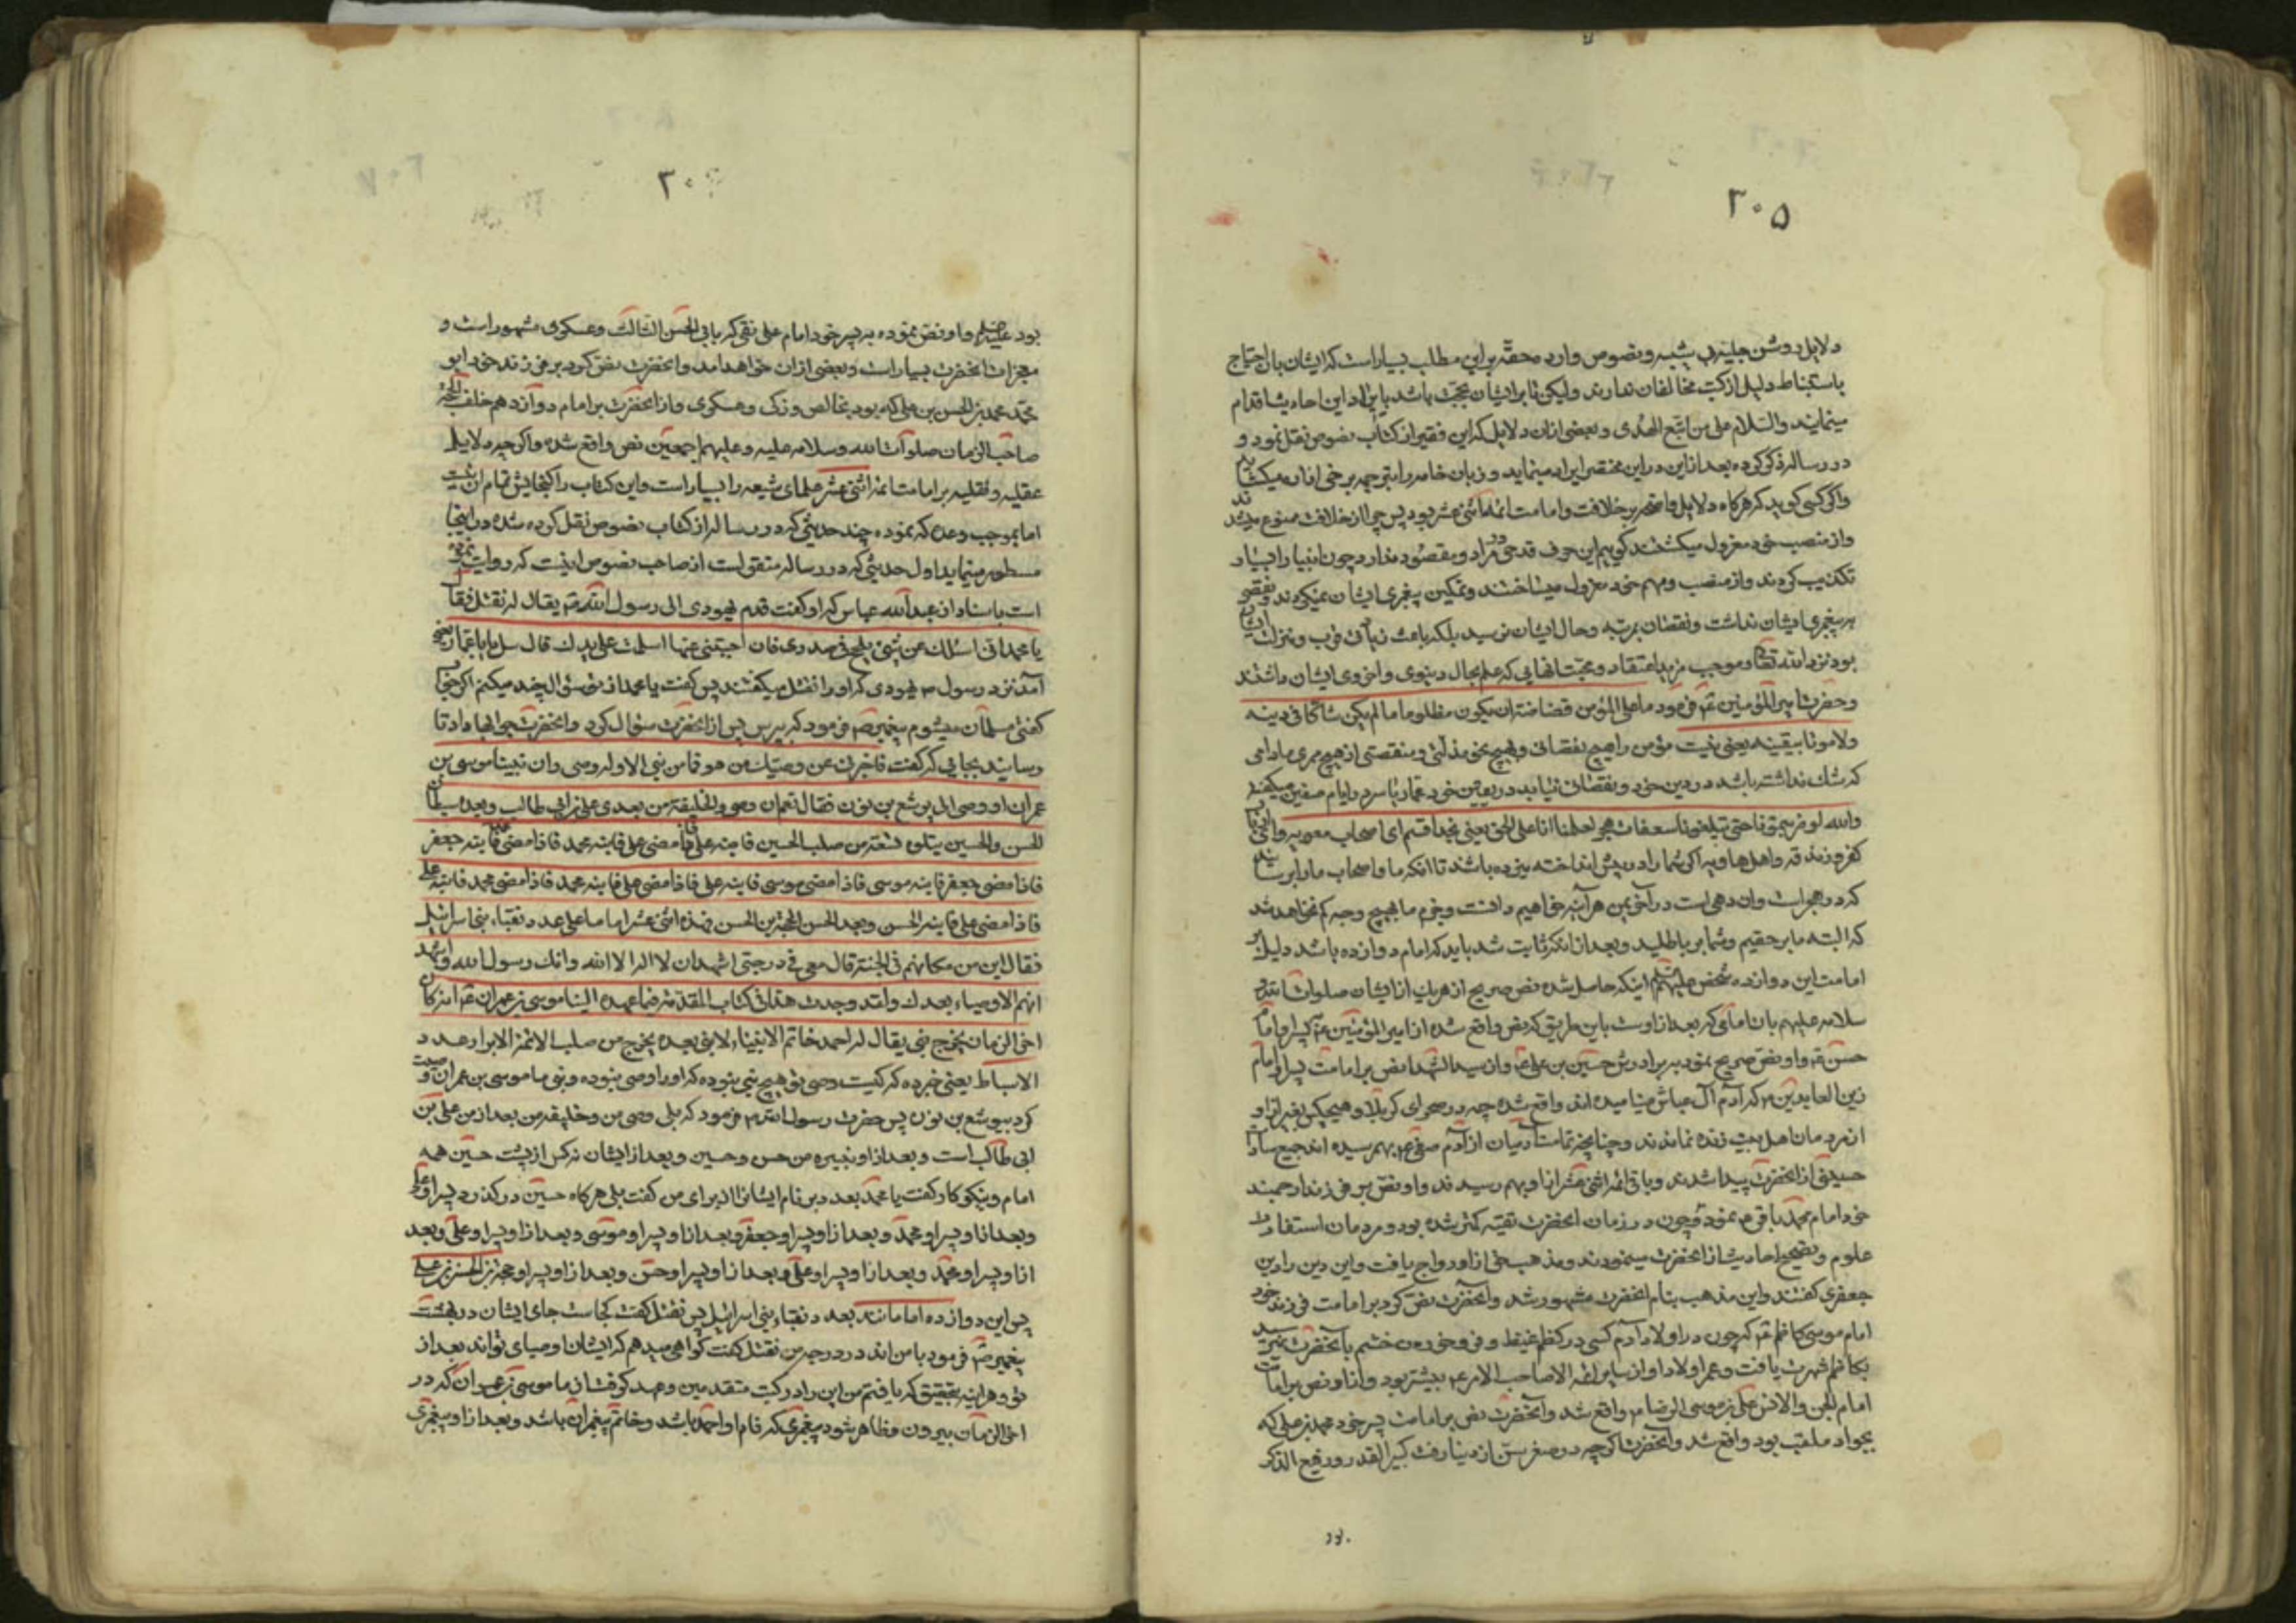 ۳۰۵
دلایل روشن جلیه بی شبیه و نصوص وارده محقه براین مطلب بسیار است که ایشان بان احتیاج
باستنباط دلیل از کتب مخالفان ندارند ولیکن تا برایشان حجت باشد بایراد این احادیث اقدام
مینمایند والسلام علی من اتبع الهدی و بعضی ازان دلایل که این فقیر از کتاب نصوص نقل نمود و
در رساله ذکر کرده بعد ازاین در این مختصر ایراد مینماید و زبان خامه را بترجمه برخی ازان میکشاید
واگر کسی کوید که هرکاه دلایل واضحه بر خلافت وامامت ائمه اثنی عشر بود پس چرا از خلافت ممنوع میشدند
واز منصب خود معزول میکشتند کوییم این حرف قدحی در مراد و مقصود ندارد چون انبیا را بسیار
تکذیب کردند واز منصب و مهم خود معزول میساختند و تمکین پیغمبری ایشان نمیکردند و نقصی
بر پیغمبری ایشان نداشت و نقصان بمرتبه وحال ایشان نرسید بلکه باعث زیادتی قرب و منزلت ایشان
بود نزد الله تعالی و موجب مزید اعتقاد و محبت انهایی که علم بحال دنیوی و اخروی ایشان داشتند
وحضرت امیر المؤمنین ع فرمود ما علی المؤمن غضاضة ان یکون مظلوما ما لم یکن شاکا فی دینه
ولا مرتابا بیقینه یعنی نیست مؤمن را هیچ نقصان و هیچ نحو مذلتی و منقصتی از هیچ ممری مادامی
که شک نداشته باشد در دین خود و نقصان نیابد در یقین خود عمار یاسر در ایام صفین میکفت
والله لو ضربتمونا حتی تبلغونا سعفات هجر لعلمنا انا علی الحق یعنی بخدا قسم ای اصحاب معویه
اکر شما را در پیش انداخته میزده باشند تا انکه ما و اصحاب ما را برسانید
که در هجر است وان دهی است در آخر یمن هر آینه خواهیم دانست و جزم ما بهیچ وجه کم نخواهد شد
که البته ما بر حقیم و شما بر باطلید و بعد از انکه ثابت شد باید که امام دوازده باشد دلیل بر
امامت این دوازده شخص علیهم السلم اینکه حاصل شده نص صریح از هریک از ایشان صلوات الله و
سلامه علیهم بان امامی که بعد از اوست باین طریق که نص واقع شده از امیر المؤمنین ع پسر او امام
حسن ع و او نص صریح نمود بر برادرش حسین بن علی ع و از سید الشهدا نص بر امامت پسر او امام
زین العابدین ع که آدم آل عباش مینامیده اند واقع شده چه در صحرای کربلا و هیچکس بغیر از او
از مردمان اهل بیت زنده نماندند و چنانچه تمامت آدمیان از آدم صفی ع بهم رسیده اند جمیع سادات
حسینی از انحضرت پیدا شدند و باقی ائمه اثنی عشر از او بهم رسیدند و او نص بر فرزند ارجمند
خود امام محمد باقر ع نمود و چون در زمان انحضرت تقیه کمتر شده بود و مردمان استفاده
علوم و تصحیح احادیث از انحضرت مینمودند و مذهب حق از او رواج یافت و این دین را دین
جعفری کفتند و این مذهب بنام انحضرت مشهور شد و آنحضرت نص کرد بر امامت فرزند خود
امام موسی کاظم ع که چون در اولاد آدم کسی در کظم غیظ و فرو خوردن خشم بآنحضرت نمیرسید
بکاظم شهرت یافت و عمر اولاد او از سایر ائمه الا صاحب الامر ع بیشتر بود و از او نص بر امامت
امام الجن والانس علی بن موسی الرضا ع واقع شد و آنحضرت نص بر امامت پسر خود محمد بن علی که
بجواد ملقب بود واقع شد و آنحضرت اکرچه در صغر سن از دنیا رفت کبیر القدر و رفیع الذکر
بود
۳۰۶
بود علیه السلم و او نص نموده به پسر خود امام علی نقی که بابی الحسن الثالث و عسکری مشهور است و
معجزات انحضرت بسیار است و بعضی ازان خواهد امد و انحضرت نص کرد بر فرزند خود ابو
محمد حسن بن علی که بود بخالص و زکی و عسکری و از انحضرت بر امام دوازدهم خلف الحجة
صاحب الزمان صلوات الله وسلامه علیه وعلیهم اجمعین نص واقع شده و اکرچه دلایل
عقلیه و نقلیه بر امامت ائمه اثنی عشر علمای شیعه را بسیار است و این کتاب را کنجایش تمام ان نیست
اما بموجب وعده که نموده چند حدیثی که در رساله از کتاب نصوص نقل کرده شده در اینجا
مسطور مینماید اول حدیثی که در رساله منقول است از صاحب نصوص اینست که روایت نموده
است باسناد از عبد الله عباس که او کفت قدم یهودی الی رسول الله ص یقال له نعثل فقال
یا محمد انی اسئلک عن شئ یلجلج فی صدری فان اجبتنی عنها اسلمت علی یدک قال سل یا ابا عماره یعنی
آمد نزد رسول ص یهودی که او را نعثل میکفتند پس کفت یا محمد از تو سؤال چند میکنم اکر جواب
کفتی مسلمان میشوم پیغمبر ص فرمود که بپرس پس از انحضرت سؤال کرد و انحضرت جوابها داد تا
رسانید بجایی که کفت فاخبرنی عن وصیک من هو فما من نبی الا وله وصی وان نبینا موسی بن
عمران اوصی الی یوشع بن نون فقال نعم ان وصیی والخلیفة من بعدی علی بن ابی طالب وبعده سبطای
الحسن والحسین یتلوه تسعة من صلب الحسین فابنه علی فاذا مضی علی فابنه محمد فاذا مضی محمد فابنه جعفر
فاذا مضی جعفر فابنه موسی فاذا مضی موسی فابنه علی فاذا مضی علی فابنه محمد فاذا مضی محمد فابنه علی
فاذا مضی علی فابنه الحسن وبعد الحسن الحجة بن الحسن فهذه اثنی عشر اماما علی عدد نقباء بنی اسرائیل
فقال این من مکانهم فی الجنة قال معی فی درجتی اشهد ان لا اله الا الله وانک رسول الله واشهد
انهم الاوصیاء بعدک ولقد وجدت هذا فی کتاب المقدمة فیما عهد الینا موسی بن عمران ع انه کان
اخر الزمان یخرج نبی یقال له احمد خاتم الانبیاء لا نبی بعده یخرج من صلبه الائمة الابرار عدد
الاسباط یعنی خبر ده که کیست وصی تو هیچ نبی نبوده که او را وصی نبوده و نبی ما موسی بن عمران وصیت
کرد بیوشع بن نون پس حضرت رسول الله ص فرمود که بلی وصی من و خلیفه من بعد از من علی بن
ابی طالب است و بعد از او نبیره من حسن و حسین و بعد از ایشان نه کس از پشت حسین همه
امام و نیکوکار کفت یا محمد بعد ببر نام ایشانرا از برای من کفت بلی هرکاه حسین درکذرد پسر او علی
و بعد از او پسر او محمد و بعد از او پسر او جعفر و بعد از او پسر او موسی و بعد از او پسر او علی و بعد
از او پسر او محمد و بعد از او پسر او علی و بعد از او پسر او حسن و بعد از او پسر او حجة بن الحسن بن علی
پس این دوازده امامانند بعدد نقباء بنی اسرائیل پس نعثل کفت کجاست جای ایشان در بهشت
پیغمبر ص فرمود با من اند در درجه من نعثل کفت کواهی میدهم که ایشان اوصیای تواند بعد از
تو و هر اینه بتحقیق که یافتم من این را در کتب متقدمین و عهد کرفتن از ما موسی بن عمران که در
اخر الزمان بیرون و ظاهر شود پیغمبری که نام او احمد باشد و خاتم پیغمبران باشد و بعد از او پیغمبری